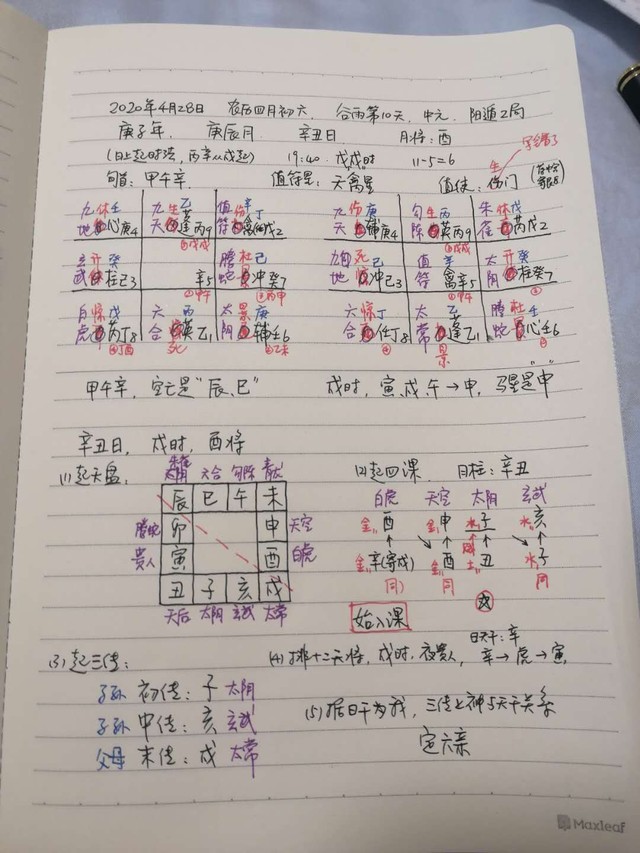 2020年4月28日 农历四月初六 谷雨第10天, 中元. 阳遁2局
庚子年, 庚辰月 辛丑日 月将: 酉
(日上起时法, 丙辛从戌起) 19:40. 戊戌时 11-5=6
旬首: 甲午辛. 值符星: 天禽星 值使: 伤门
九休壬 九生乙 值伤辛丁 九伤庚 勾生丙 朱休戊
地心庚4 天蓬丙9 符禽戊2 地辅庚4 陈英丙9 雀芮戊2
玄开癸 螣杜己 九死己 值辛 太开癸
武柱己3 辛5 蛇冲癸7 地冲己3 符禽辛5 阴柱癸7
白惊戊 六丙 太景庚 六惊丁 太乙 螣杜壬
虎芮丁8 合英乙1 阴辅壬6 合任丁8 常蓬乙1 蛇心壬6
死 景
甲午辛, 空亡是“辰、巳” 戌时, 寅、戌、午→申, 马星是“申”
辛丑日, 戌时, 酉将
(1)起天盘, 朱雀 六合 勾陈 青龙 (2)起四课. 日柱: 辛丑
辰 巳 午 未 白虎 天空 太阴 玄武
螣蛇 卯 申 天空 金酉 金申 水子 水亥
贵人 寅 酉 白虎 金辛(寄戌) 金酉 土丑 水子
丑 子 亥 戌 同 同 同
天后 太阴 玄武 太常 始入课
(3)起三传: (4)排十二天将, 戌时, 夜贵人, 日天干: 辛 辛→虎→寅
子孙 初传: 子 太阴 (5)据日干为我, 三传上神与天干关系
子孙 中传: 亥 玄武 定六亲
父母 末传: 戌 太常
Maxleaf